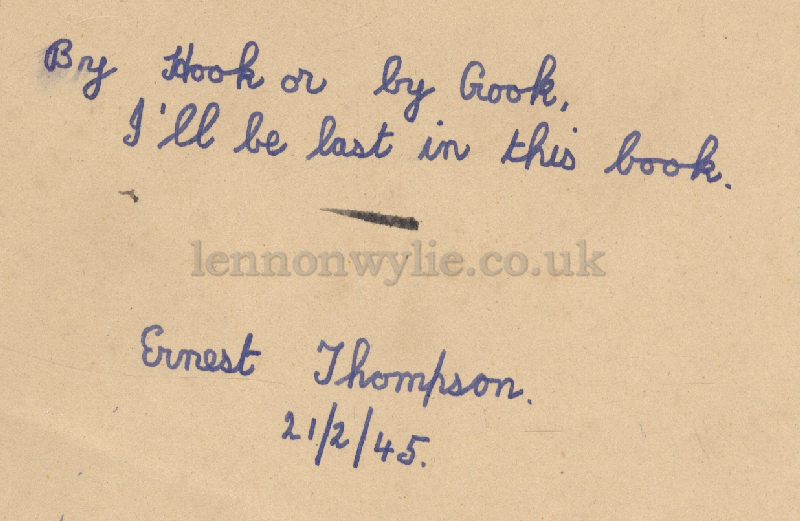 By Hook or by Crook,
I'll be last in this book.
lennonwylie.co.uk
Ernest Thompson.
21/2/45.